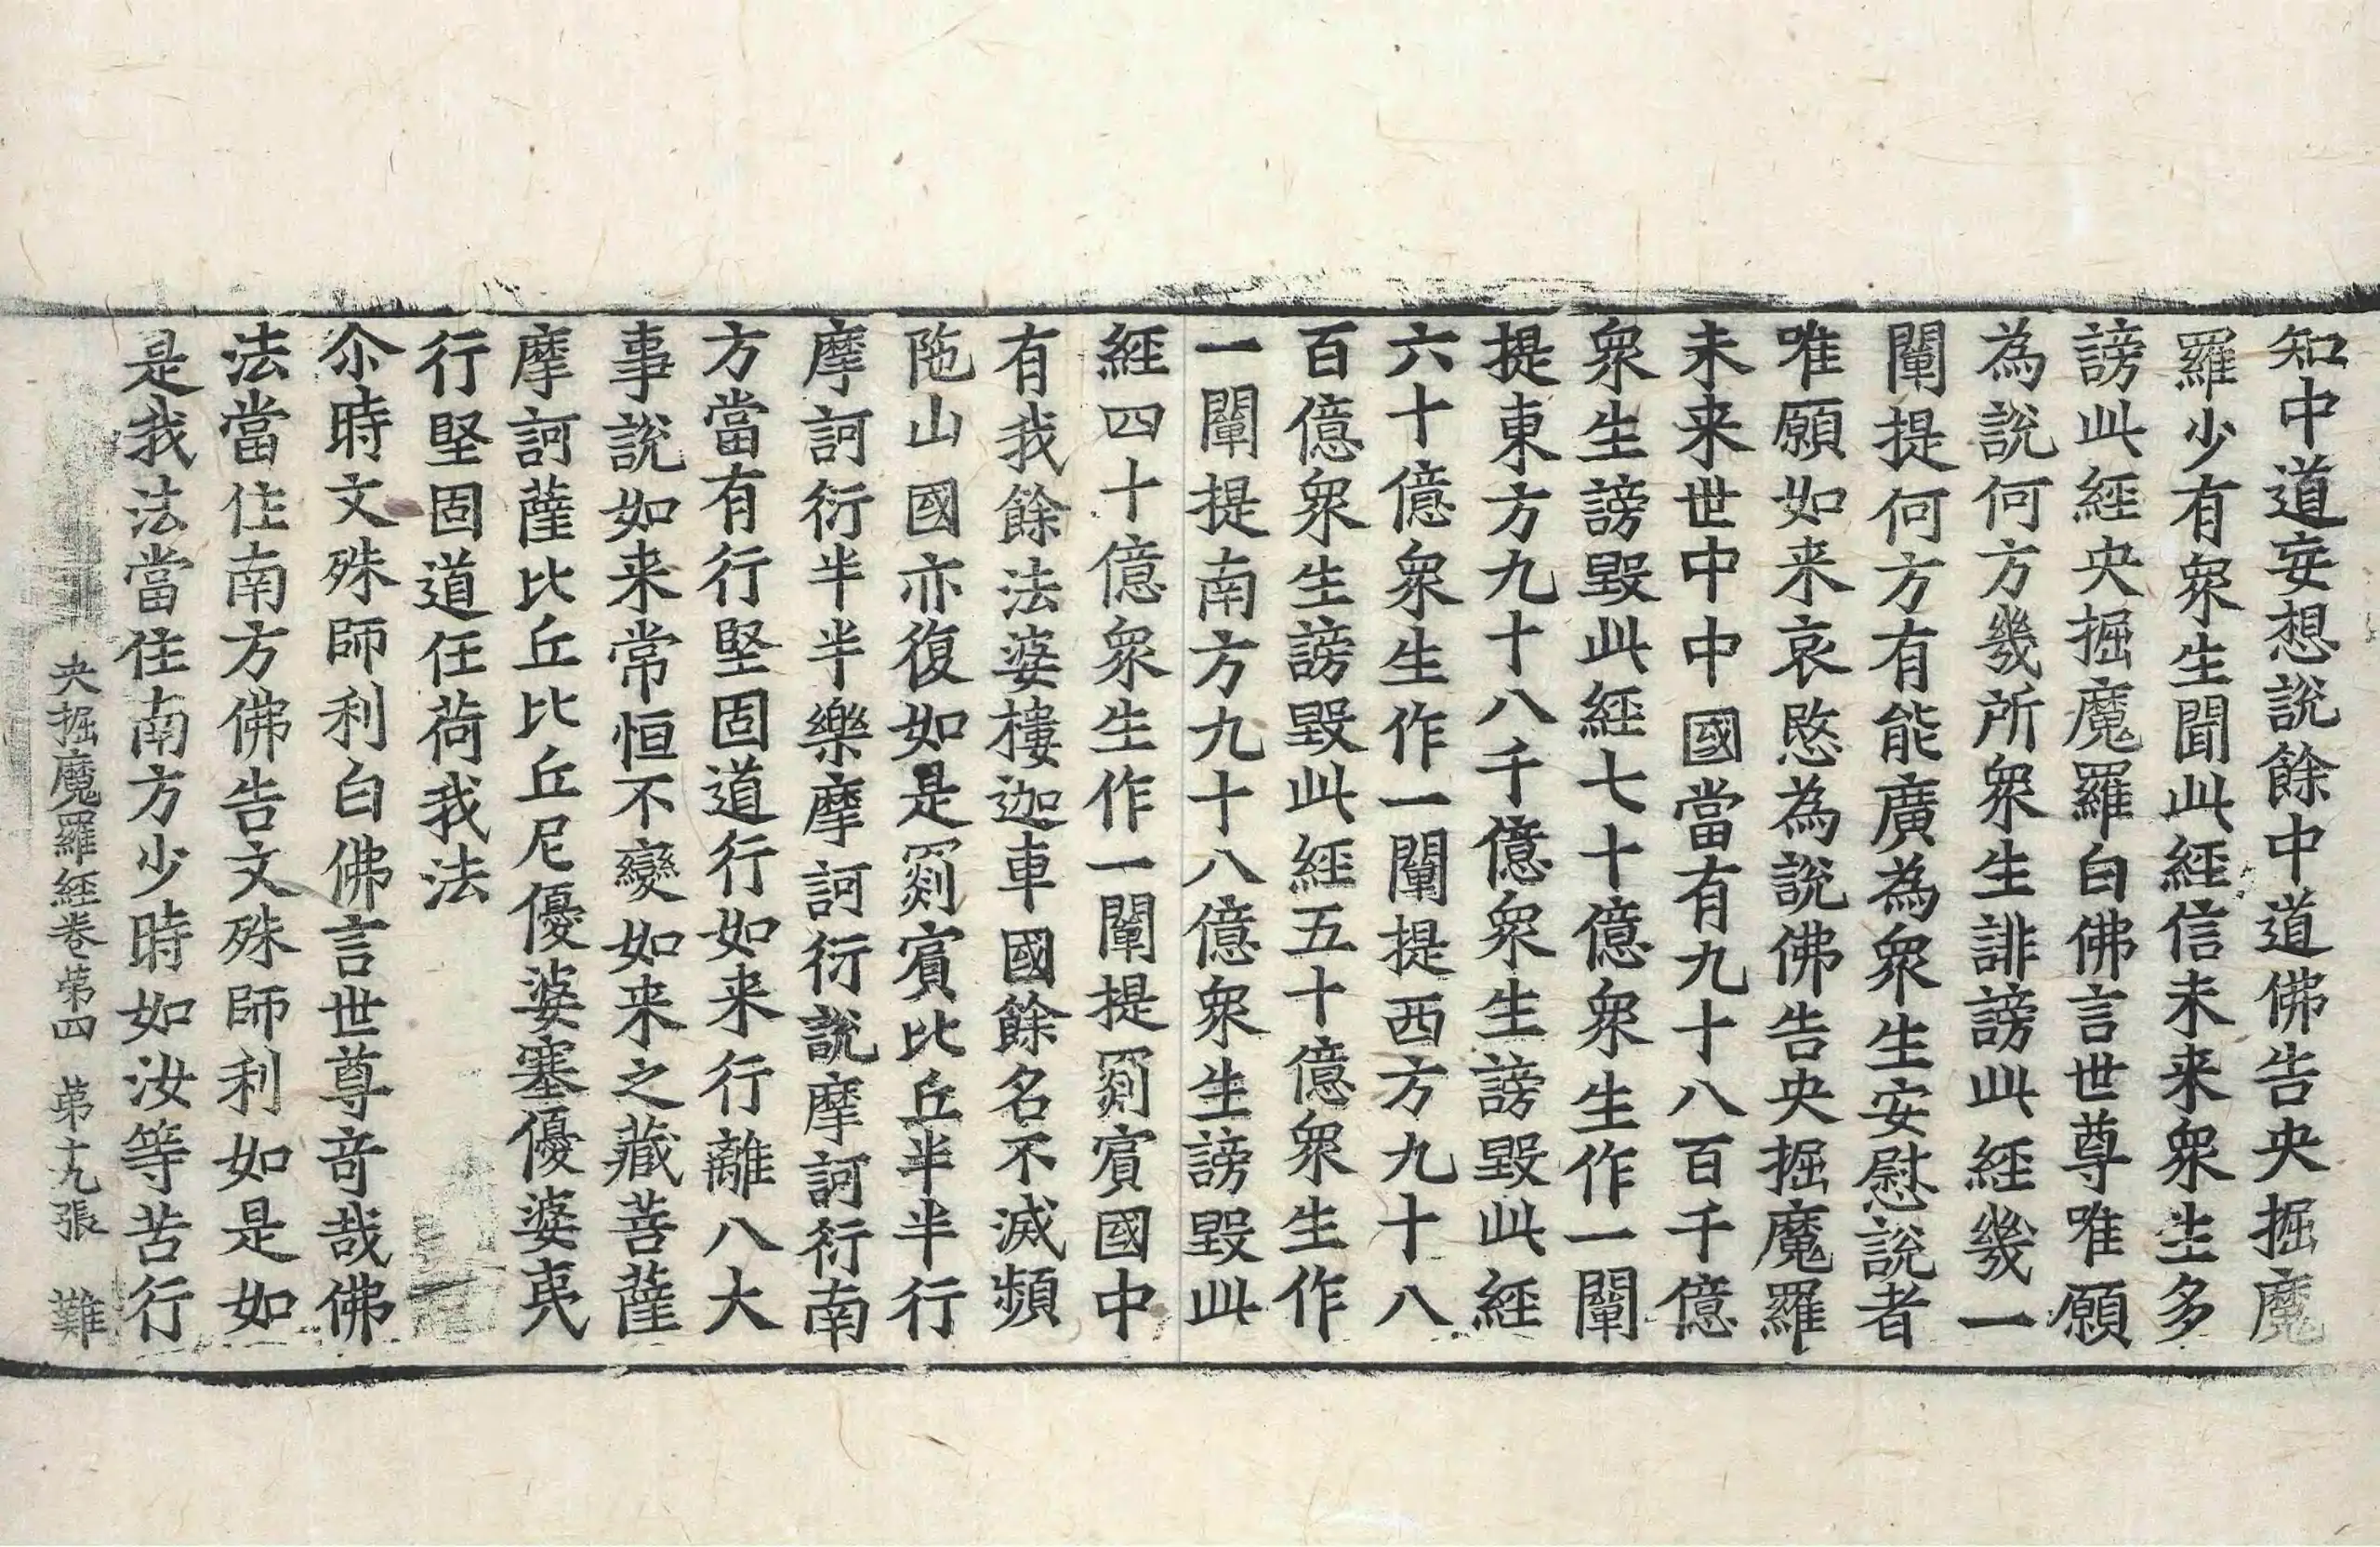 知中道妄想說餘中道佛告央掘魔
羅少有衆生聞此經信未来衆生多
謗此經央掘魔羅白佛言世尊唯願
為說何方幾所衆生誹謗此經幾一
闡提何方有能廣為衆生安慰說者
唯願如来哀愍為說佛告央掘魔羅
未来世中中國當有九十八百千億
衆生謗毀此經七十億衆生作一闡
提東方九十八千億衆生謗毀此經
六十億衆生作一闡提西方九十八
百億衆生謗毀此經五十億衆生作
一闡提南方九十八億衆生謗毀此
經四十億衆生作一闡提罽賓國中
有我餘法婆樓迦車國餘名不滅頻
陁山國亦復如是罽賓比丘半半行
摩訶衍半半樂摩訶衍說摩訶衍南
方當有行堅固道行如来行離八大
事說如来常恒不變如来之藏菩薩
摩訶薩比丘比丘尼優婆塞優婆夷
行堅固道任荷我法
尒時文殊師利白佛言世尊竒哉佛
法當住南方佛告文殊師利如是如
是我法當住南方少時如汝等苦行
央掘魔羅經卷第四　第十九張　難